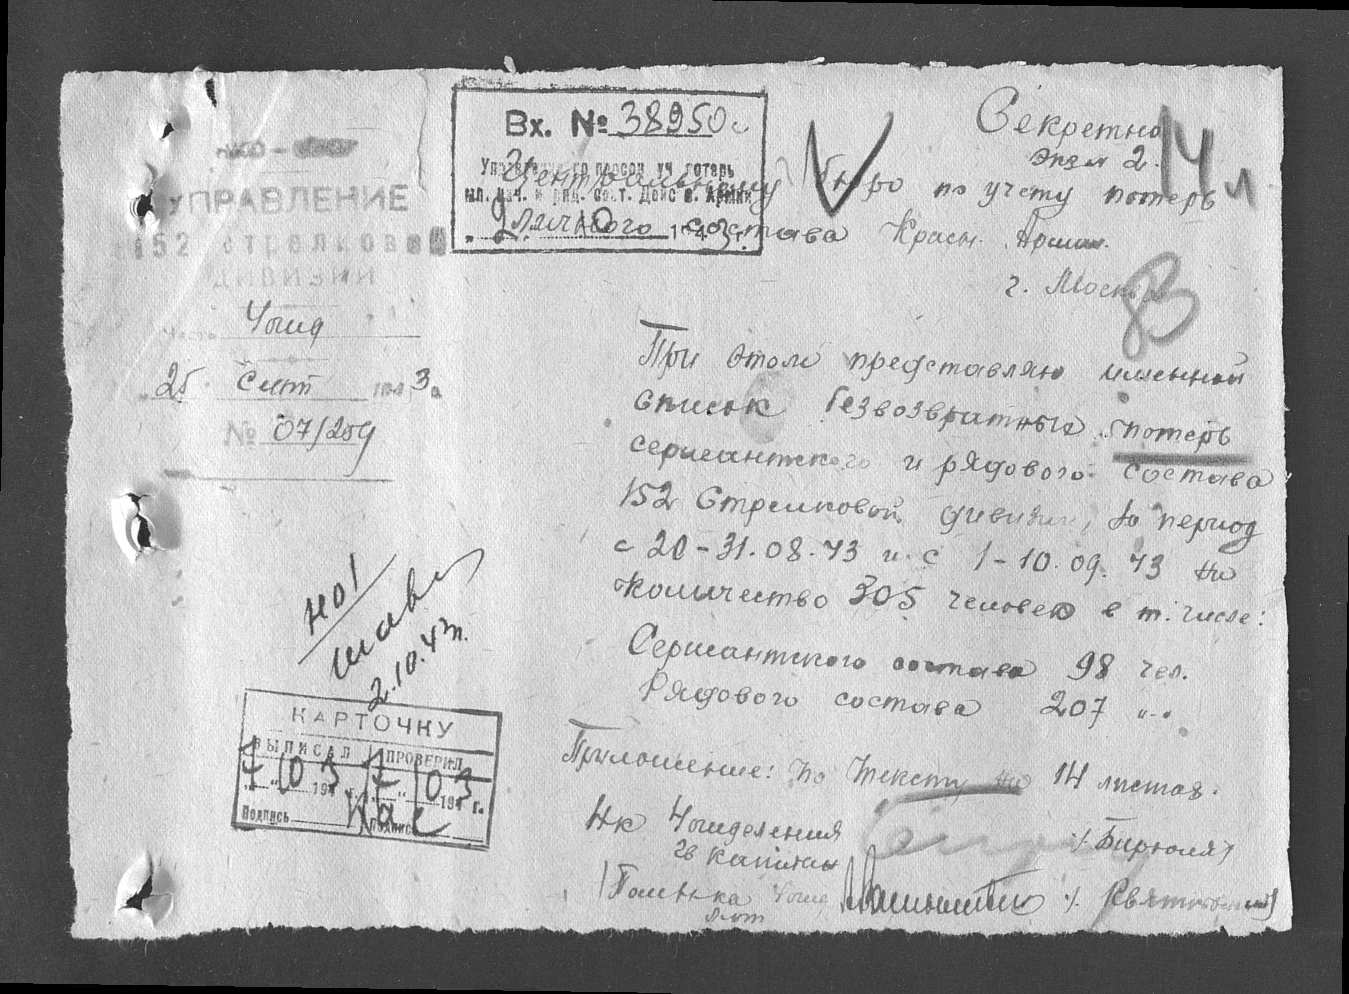 УПРАВЛЕНИЕ
152 стрелковой
ДИВИЗИИ
Часть 4 отд
"25" сент 1943 г.
№ 07/209
Вх. № 38950с
Управление по персон. уч. потерь
мл. нач. и ряд. сост. Дейс в. Армии
2 10 1943 г.
Секретно
Экз № 2.
14 л
Центральному бюро по учету потерь
личного состава Красн. Армии.
г. Москва
При этом представляю именной
список безвозвратных потерь
сержантского и рядового состава
152 Стрелковой дивизии, за период
с 20-31.08.43 и с 1-10.09.43 на
количество 305 человек в т. числе:
Сержантского состава 98 чел.
Рядового состава 207 "-"
Приложение: по тексту на 14 листах.
Нк 4 отделения
гв капитан
/Бирюля/
Пом. н-ка 4 отд
2.10.43 г.
КАРТОЧКУ
ВЫПИСАЛ ПРОВЕРИЛ
7 " 10 1943 г. 7 " 10 1943 г.
Подпись Подпись